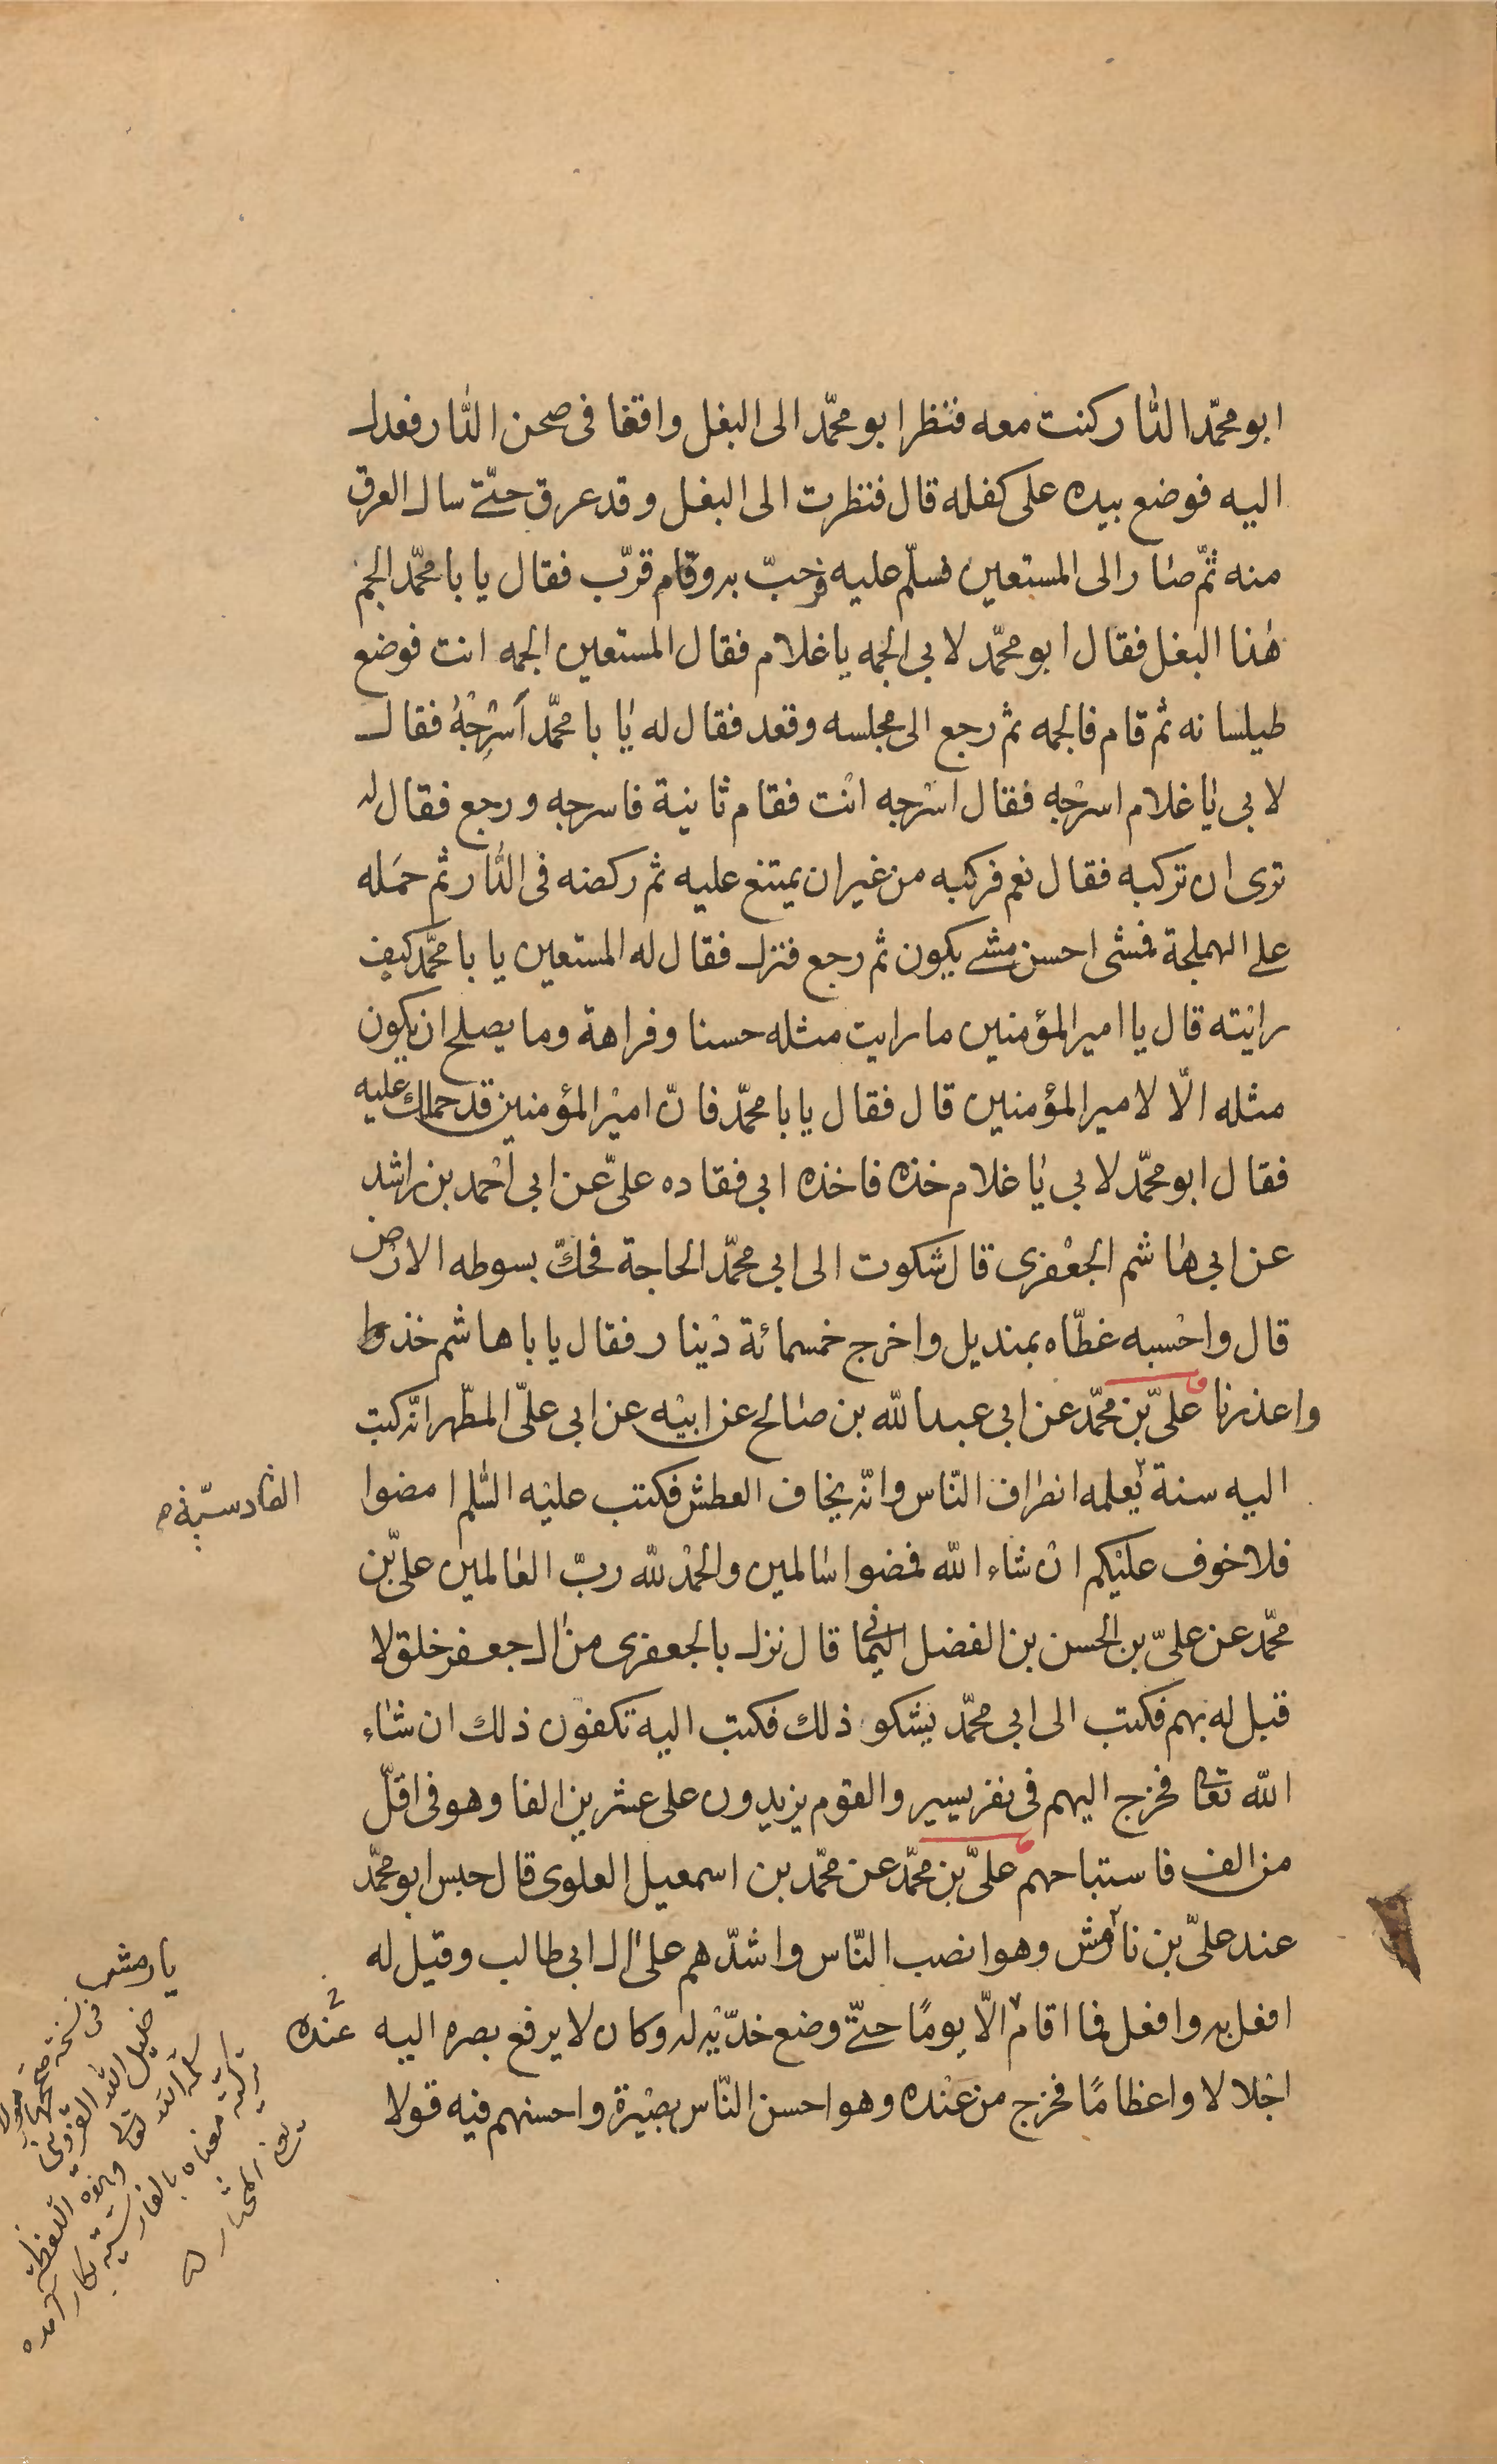 ابو محمّد الدّار كنت معه فنظر ابو محمّد الى البغل واقفا فى صحن الدّار فعدل
اليه فوضع بيده على كفله قال فنظرت الى البغل وقد عرق حتّى سال العرق
منه ثمّ صار الى المستعين فسلّم عليه فرحبّ به وقام قرّب فقال يا با محمّد الجم
هذا البغل فقال ابو محمّد لابى الجمه يا غلام فقال المستعين الجمه انت فوضع
طيلسانه ثم قام فالجمه ثم رجع الى مجلسه وقعد فقال له يا با محمّد اَسْرِجْهُ فقال
لابى يا غلام اسرْجه فقال اسْرجه انْت فقام ثانية فاسرجه ورجع فقال له
ترى ان تركبه فقال نعم فركبه من غير ان يمتنع عليه ثم ركضه فى الدّار ثم حمَله
على الهملجة فمشى احسن مشى يكون ثم رجع فنزل فقال له المستعين يا با محمّد كيف
رايته قال يا امير المؤمنين ما رايت مثله حسنا وفراهة وما يصلح ان يكون
مثله الّا لامير المؤمنين قال فقال يا با محمّد فانّ امير المؤمنين قد حملك عليه
فقال ابو محمّد لابى يا غلام خذه فاخذه ابى فقاده علىّ عن ابى احْمد بن راشد
عن ابى هاشم الجعْفرى قال شكوت الى ابى محمّد الحاجة فحكّ بسوطه الارض
قال واحْسبه غطّاه بمنديل واخرج خمسمائة دْينار فقال يا با هاشم خذ
واعذرنا علىّ بن محمّد عن ابى عبد الله بن صالح عن ابيْه عن ابى علىّ المطّهر انّه كتب
اليه سنة يعلمه انصراف النّاس وانّه يخاف العطش فكتب عليْه السّلم امضوا
القادسيّة
فلا خوف عليْكم انْ شاء الله فمضوا سالمين والحمْد لله ربّ العالمين علىّ بن
محمّد عن علىّ بن الحسن بن الفضل اليمانى قال نزل بالجعفرى من ال جعفر خلق لا
قبل له بهم فكتب الى ابى محمّد يشكو ذلك فكتب اليه تكفون ذلك ان شاء
الله تعالى فخرج اليهم فى نفر يسير والقوم يزيدون على عشرين الفا وهو فى اقلّ
من الف فاستباحهم علىّ بن محمّد عن محمّد بن اسمعيل العلوى قال حبس ابو محمّد
عند علىّ بن نارمش وهو انصب النّاس واشدّهم على ال ابى طالب وقيل له
افعل به وافعل فما اقام الّا يومًا حتّى وضع خدّيْه له وكان لا يرفع بصره اليه
عنده
اجْلالا واعظامًا فخرج من عنْده وهو احسن النّاس بصيْرة واحسنهم فيه قولا
يارمش
فى نسخة صححها مولانا
خليل الله القزوينى
سلمه الله تعالى وهذه اللفظة
تركية معناه بالفارسية بكار آمده